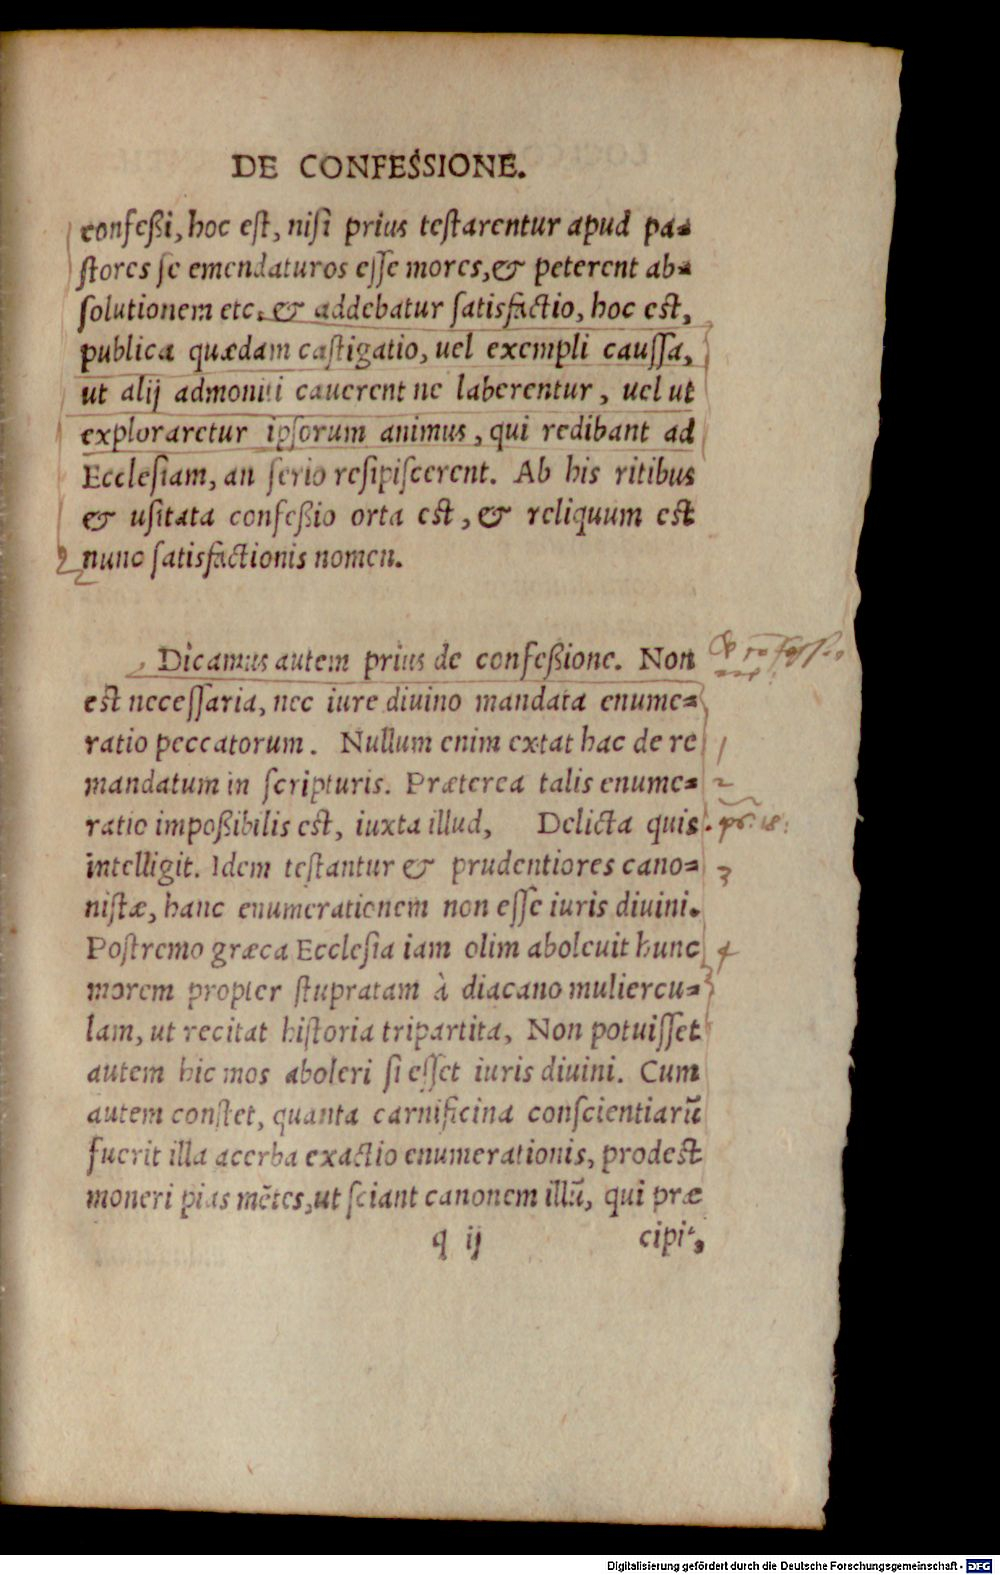 DE CONFESSIONE.
confeßi, hoc est, nisi prius testarentur apud pa-
stores se emendaturos esse mores, & peterent ab-
solutionem etc. & addebatur satisfactio, hoc est,
publica quædam castigatio, uel exempli caussa,
ut alij admoniti cauerent ne laberentur, uel ut
exploraretur ipsorum animus, qui redibant ad
Ecclesiam, an serio resipiscerent. Ab his ritibus
& usitata confeßio orta est, & reliquum est
nunc satisfactionis nomen.
Dicamus autem prius de confeßione. Non
est necessaria, nec iure diuino mandata enume-
ratio peccatorum. Nullum enim extat hac de re
1
mandatum in scripturis. Præterea talis enume-
2
ratio impoßibilis est, iuxta illud, Delicta quis
ps. 18.
intelligit. Idem testantur & prudentiores cano-
3
nistæ, hanc enumerationem non esse iuris diuini.
Postremo græca Ecclesia iam olim aboleuit hunc
4
morem propter stupratam à diacano muliercu-
lam, ut recitat historia tripartita, Non potuisset
autem hic mos aboleri si esset iuris diuini. Cum
autem constet, quanta carnificina conscientiarū
fuerit illa acerba exactio enumerationis, prodest
moneri pias mētes, ut sciant canonem illū, qui præ
q ij cipit,
Digitalisierung gefördert durch die Deutsche Forschungsgemeinschaft - DFG